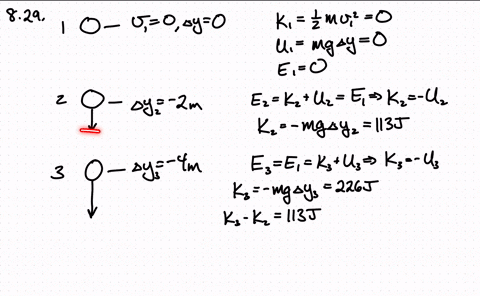 8.29.
1 — v₁=0, Δy=0
K₁ = ½ m v₁² = 0
U₁ = mgΔy = 0
E₁ = 0
2 — Δy₂ = -2m
E₂ = K₂ + U₂ = E₁ ⇒ K₂ = -U₂
K₂ = -mgΔy₂ = 113J
3 — Δy₃ = -4m
E₃ = E₁ = K₃ + U₃ ⇒ K₃ = -U₃
K₃ = -mgΔy₃ = 226J
K₃ - K₂ = 113J